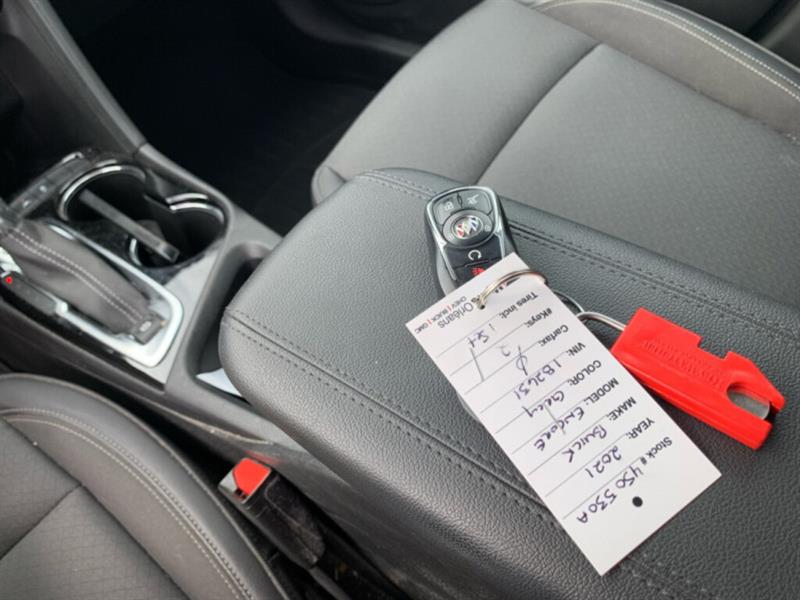 Stock # 450 530A
YEAR: 2021
MAKE: BUICK
MODEL: ENCORE
COLOR: Grey
VIN:
Carfax: Ø
#Keys: 2
Tires Incl: 1 Set
Orléans
CHEV | BUICK | GMC